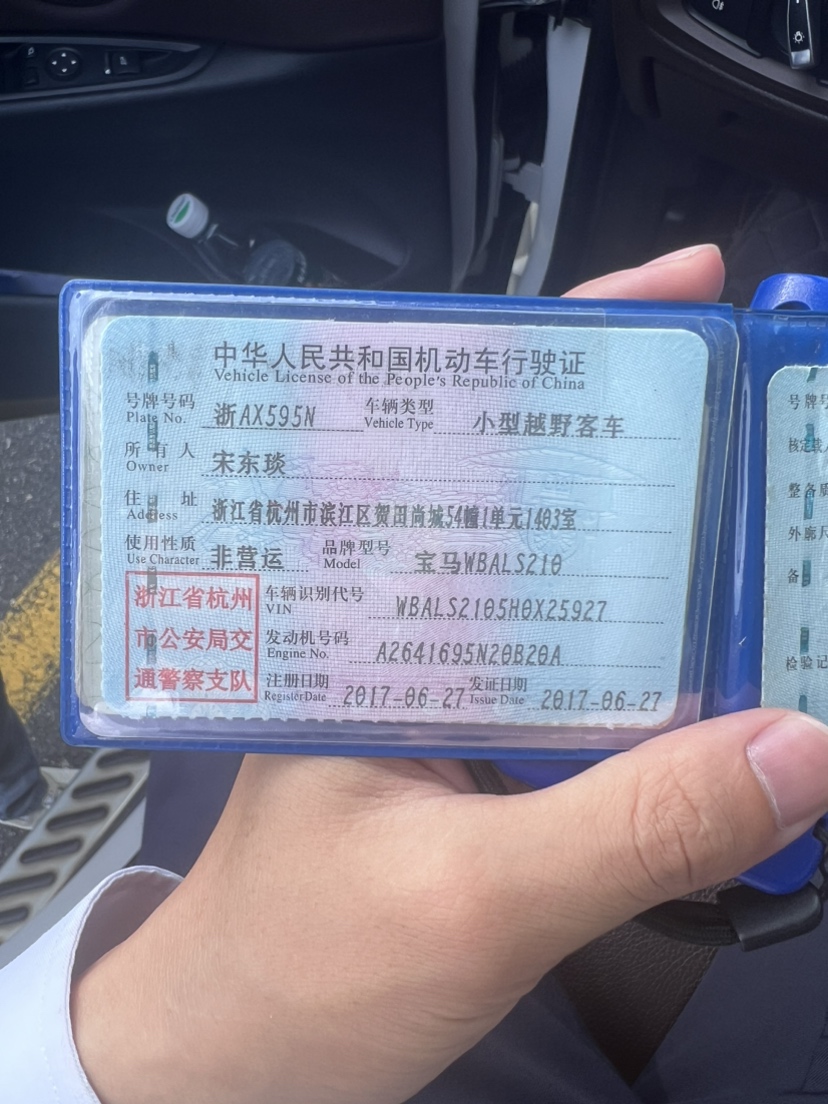 中华人民共和国机动车行驶证
Vehicle License of the People's Republic of China
号牌号码 浙AX595N 车辆类型 小型越野客车
Plate No. Vehicle Type
所有人 宋东琰
Owner
住址 浙江省杭州市滨江区贺田尚城54幢1单元1403室
Address
使用性质 非营运 品牌型号 宝马WBALS210
Use Character Model
浙江省杭州
市公安局交
通警察支队
车辆识别代号 WBALS2105H0X25927
VIN
发动机号码 A2641695N20B20A
Engine No.
注册日期 2017-06-27 发证日期 2017-06-27
Register Date Issue Date
号牌号
核定载人
整备质
外廓尺
备
检验记